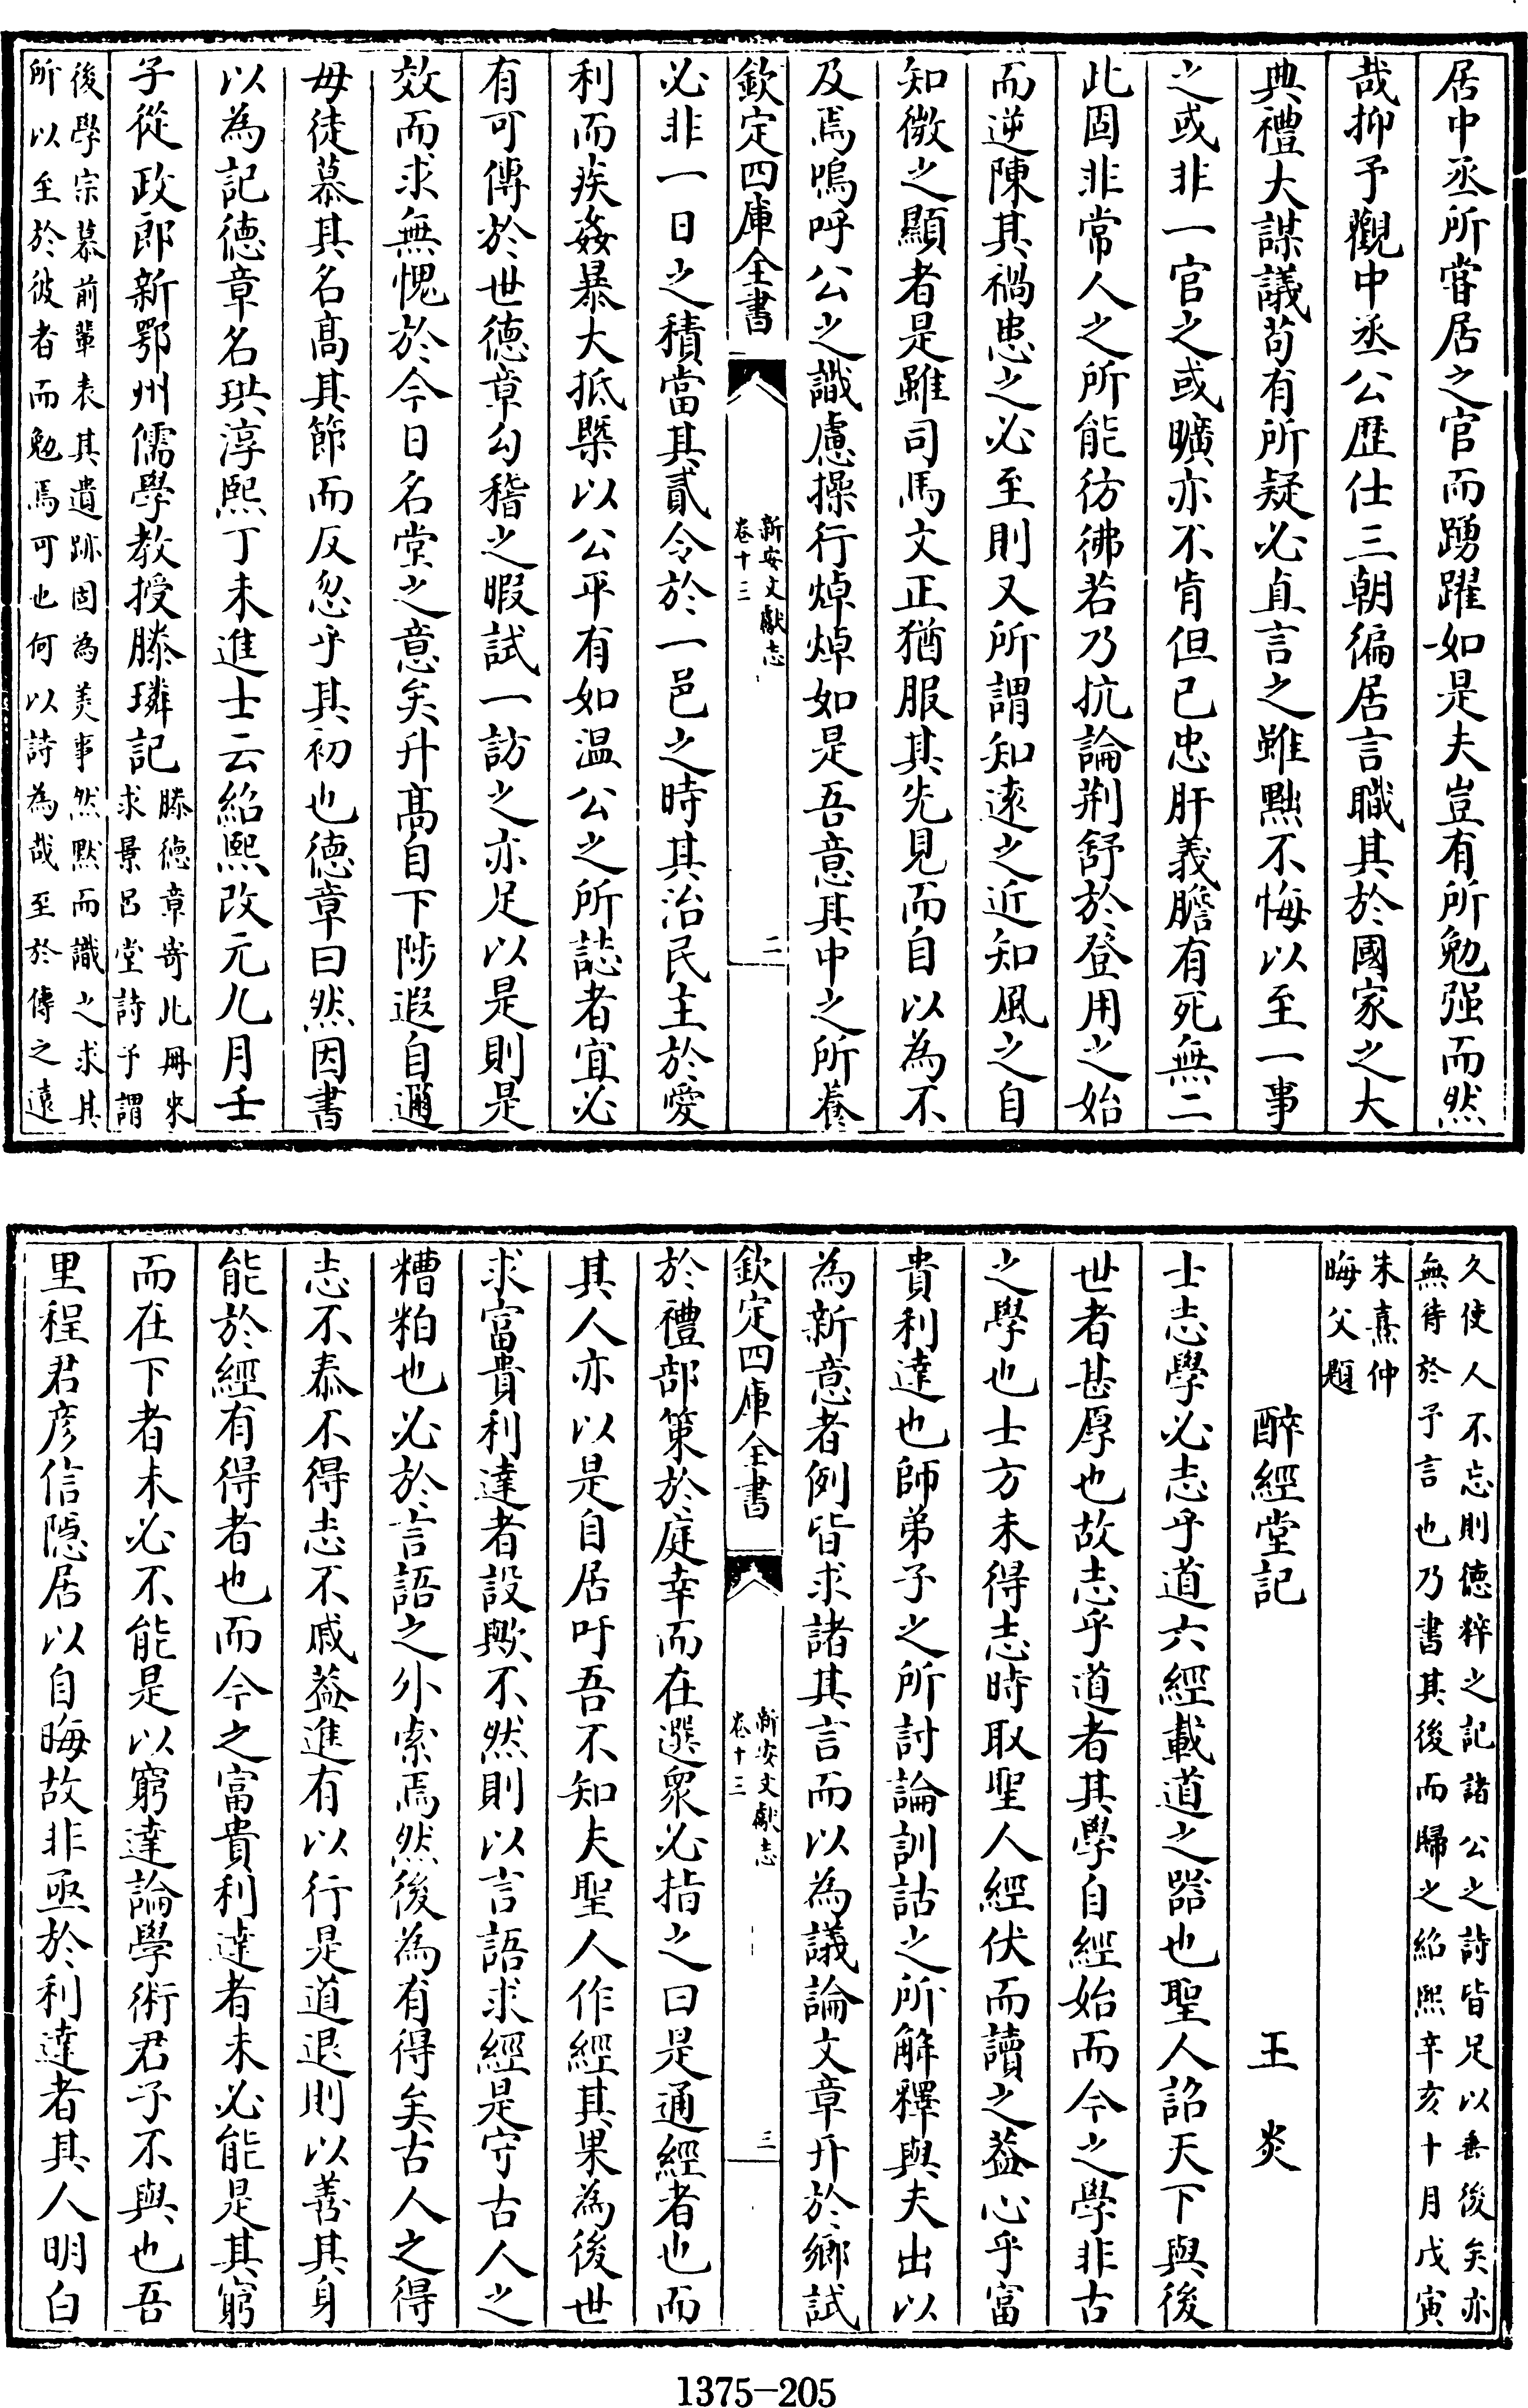 居中丞所嘗居之官而踴躍如是夫豈有所勉强而然
哉抑予觀中丞公歴仕三朝徧居言職其於國家之大
典禮大謀議苟有所疑必直言之雖黜不悔以至一事
之或非一官之或曠亦不肯但已忠肝義膽有死無二
此固非常人之所能彷彿若乃抗論荆舒於登用之始
而逆陳其禍患之必至則又所謂知逺之近知風之自
知微之顯者是雖司馬文正猶服其先見而自以為不
及焉嗚呼公之識慮操行焯焯如是吾意其中之所養
欽定四庫全書
新安文獻志
卷十三
二
必非一日之積當其貳令於一邑之時其治民主於愛
利而疾姦暴大抵槩以公平有如温公之所誌者宜必
有可傳於世德章勾稽之暇試一訪之亦足以是則是
效而求無愧於今日名堂之意矣升髙自下陟遐自邇
毋徒慕其名髙其節而反忽乎其初也德章曰然因書
以為記德章名珙淳熙丁未進士云紹熙改元九月壬
子從政郎新鄂州儒學教授滕璘記
滕德章寄此冊來
求景呂堂詩予謂
後學宗慕前輩表其遺跡固為美事然黙而識之求其
所以至於彼者而勉焉可也何以詩為哉至於傳之遠
久使人不忘則德粹之記諸公之詩皆足以垂後矣亦
無待於予言也乃書其後而歸之紹熙辛亥十月戊寅
朱熹仲
晦父題
醉經堂記
王炎
士志學必志乎道六經載道之器也聖人詔天下與後
世者甚厚也故志乎道者其學自經始而今之學非古
之學也士方未得志時取聖人經伏而讀之葢心乎富
貴利達也師弟子之所討論訓詁之所解釋與夫出以
為新意者例皆求諸其言而以為議論文章升於鄉試
欽定四庫全書
新安文獻志
卷十三
三
於禮部策於庭幸而在選衆必指之曰是通經者也而
其人亦以是自居吁吾不知夫聖人作經其果為後世
求富貴利達者設歟不然則以言語求經是守古人之
糟粕也必於言語之外索焉然後為有得矣古人之得
志不㤗不得志不戚葢進有以行是道退則以善其身
能於經有得者也而今之富貴利達者未必能是其窮
而在下者未必不能是以窮達論學術君子不與也吾
里程君彦信隠居以自晦故非亟於利達者其人明白
1375-205